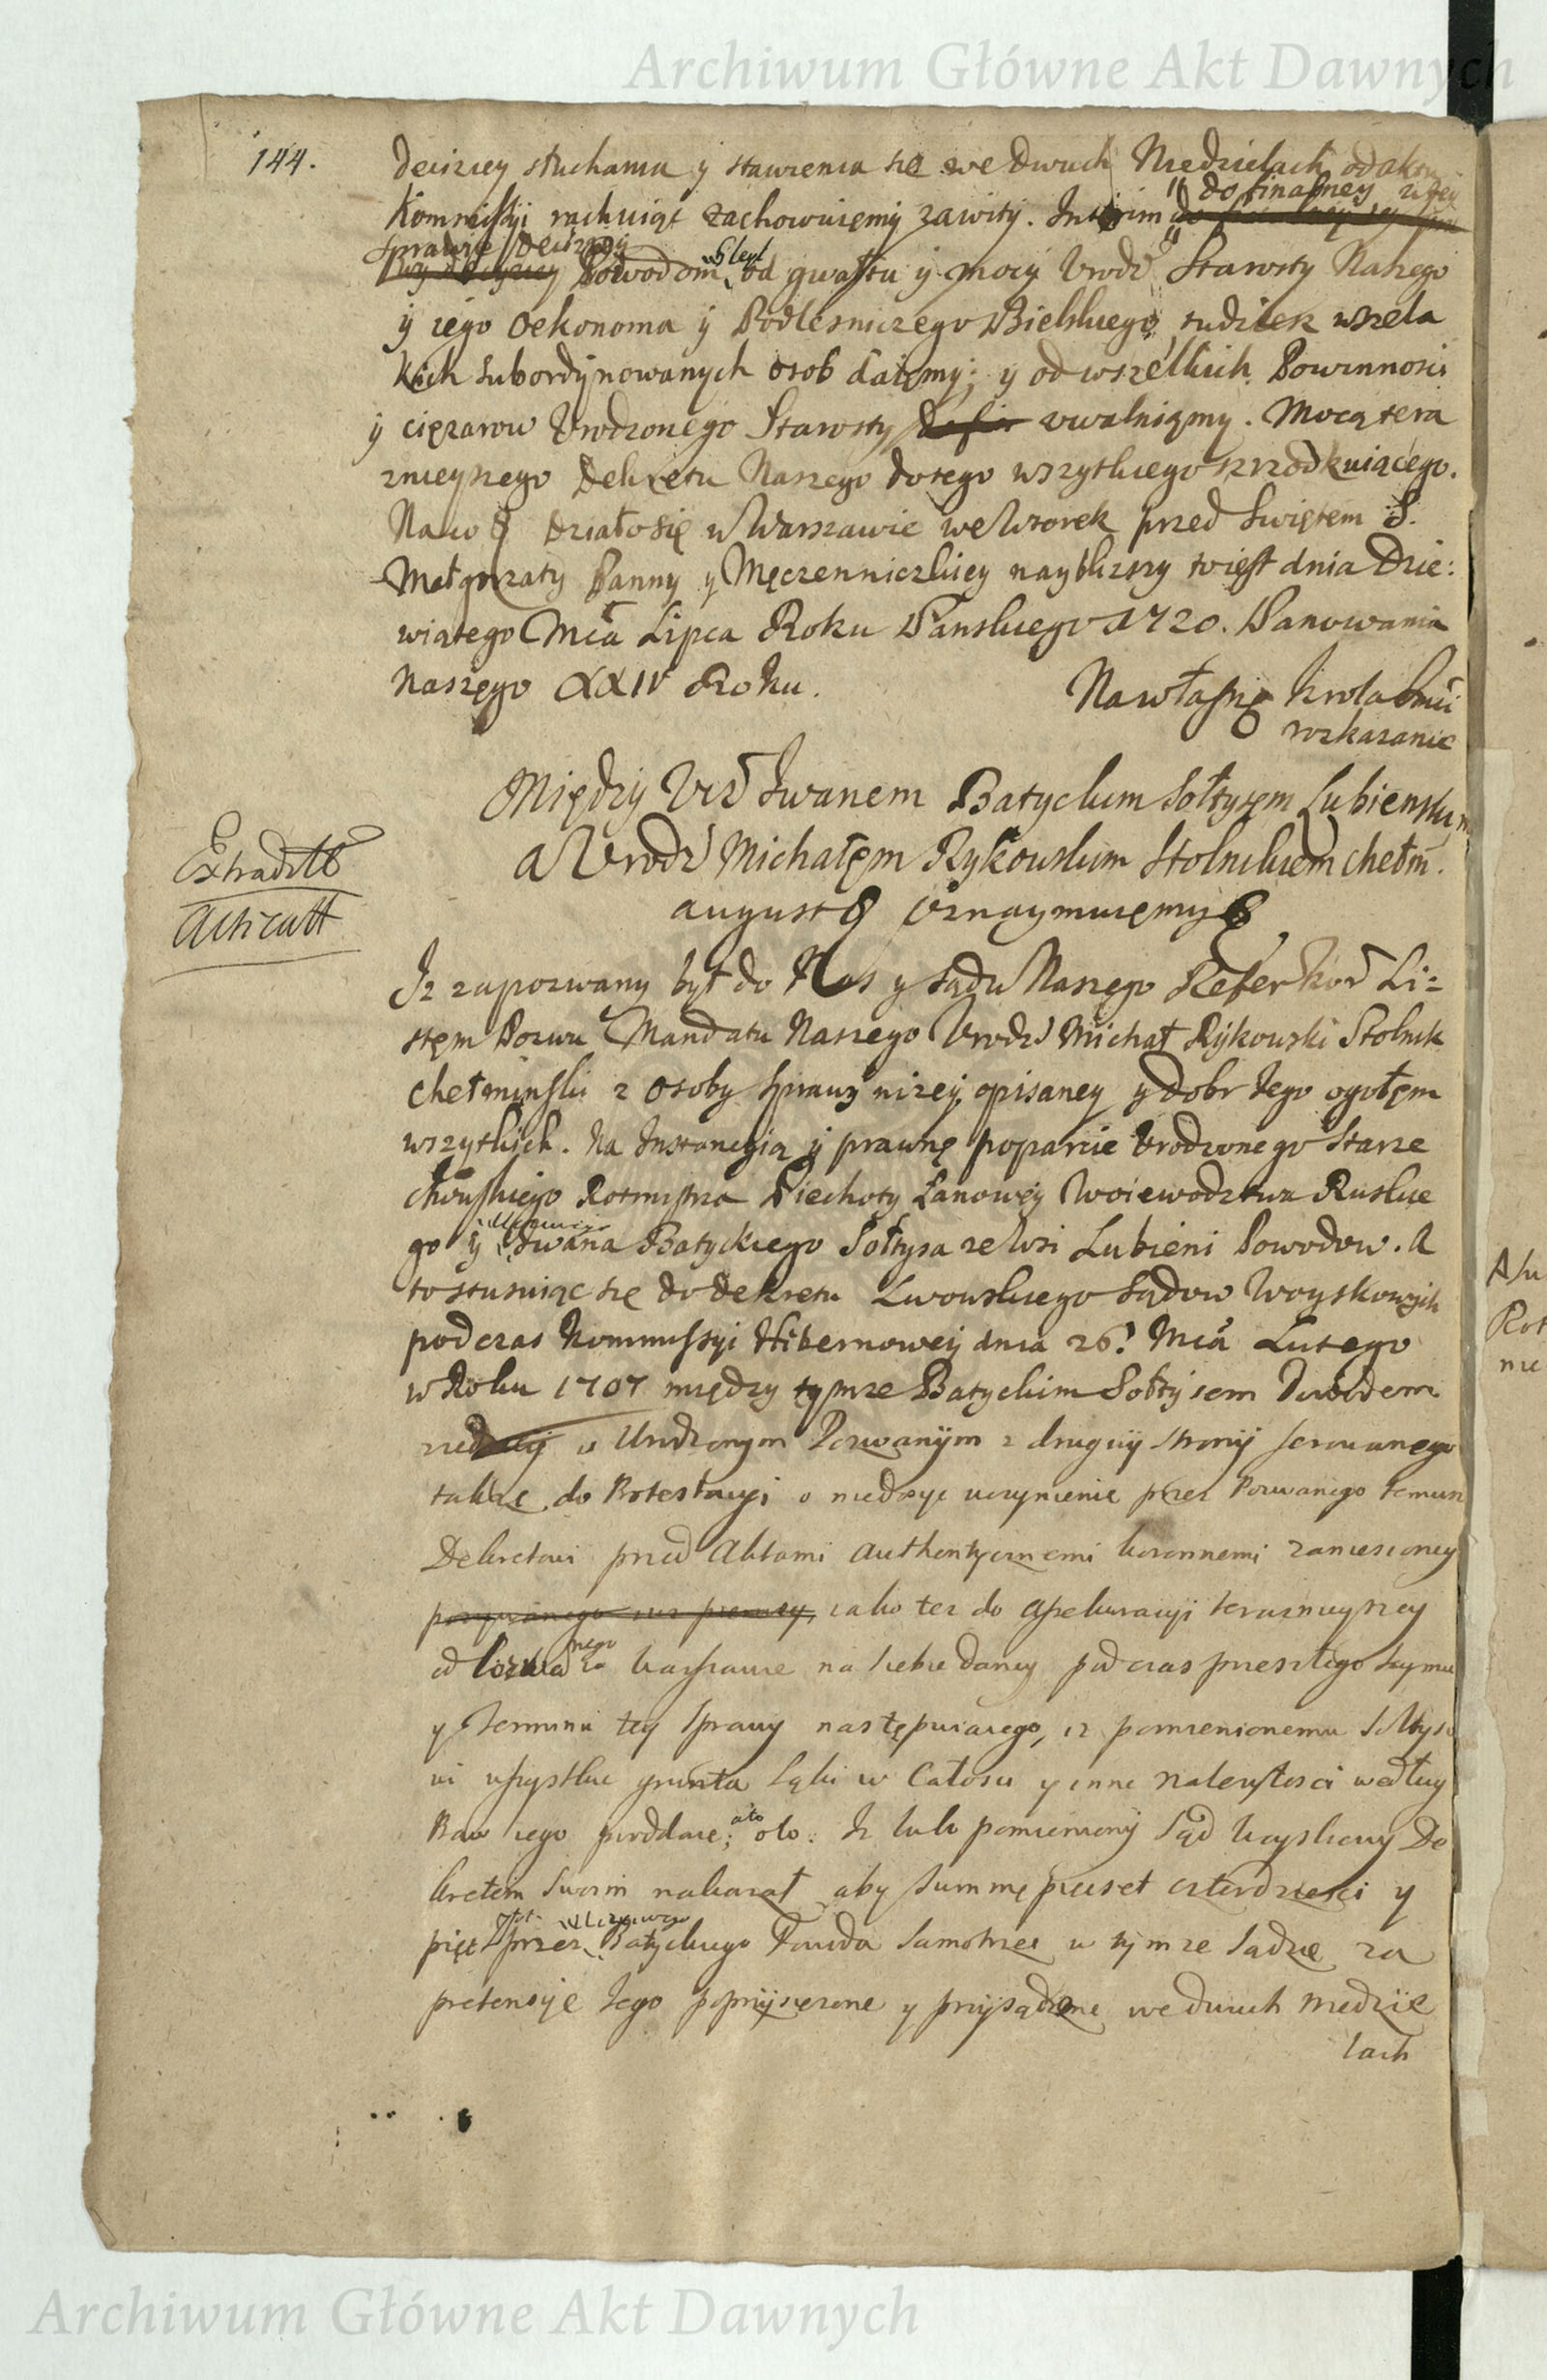 Archiwum Główne Akt Dawnych
144.
deciziey słuchania y stawienia się we dwuch Niedzielach od akt
do finalney w tey
Kommissyi rachuiąc zachowuięmy zawity. Interim
sprawie decizyi
Powodom Gleyt od gwałtu y mocy Urodź Starosty Naszego
ÿ iego Oekonoma ÿ Podlesniczego Bielskiego, tudziesz wszela
kich subordynowanych osob daięmy; y od wszelkich Powinnosci
ÿ cięzarow Urodzonego Starosty uwalniąmy. Mocą tera
znieyszego Dekretu Naszego do tego wszytkiego szrzodkuiącego.
Działo się w Warszawie we Wtorek przed Swiętem S.
Małgorzaty Panny y Męczenniczkiey naybliszy to iest dnia Dzie:
wiątego Mca Lipca Roku Panskiego 1720. Panowania
Naszego XXIV Roku.
Na własne Krola Jmci
rozkazanie
Między Urodź Iwanem Batyckim Sołtysem Lubienskim
a Urodź Michałęm Rykowskim Stolnikiem Chełm.
August Oznaymuięmy
Extradit
Iz zapozwany był do Nas y sądu Naszego Refer Kor Li=
stęm Pozwu Mandatu Naszego Urodź Michał Rÿkowski Stolnik
Chełminski z Osoby sprawy nizeÿ opisaney y dobr Iego ogołęm
wszytkich. Na Instancyią ÿ prawnę poparcie Urodzonego Starze
chowskiego Rotmistrza Piechoty Łanoweÿ Woiewodztwa Ruskie
go ÿ Iwana Batyckiego Sołtysa ze Wsi Lubieni Powodow. A
to stusuiąc się do dekretu Lwowskiego Sądow Woyskowych
podczas Kommissyi Hibernoweÿ dnia 26. Mca Lutego
w Roku 1707 między tymze Batyckim Sołtysem
a Urodzonym Pozwanÿm z drugiÿ stronÿ ferowanego
takze do Protestacyi o niedosyc uczynienie przez Pozwanego temusz
Dekretowi przed Aktami Authentycznemi koronnemi zaniesioney
iako tez do Assekuracyi teraznieyszey
od Pozwanego w Warszawie na siebie daney podczas przeszłego Seymu
y Terminu tey Sprawy następuiącego, iz pomienionemu Sołtyso
wi wszystkie grunta Łąki w Całosci y inne nalezytosci według
Praw iego podda; a to oto: Iz lubo pomienionÿ Sąd Woyskowy De
kretem Swoim nakazał aby summę pięcset czterdziesci y
złt.
pięc przez Batyckiego samotrzec w tÿmze Sądzie za
pretensÿe Iego poprzÿsięzone y przÿsądzone we dwuch niedzie
lach
Archiwum Główne Akt Dawnych